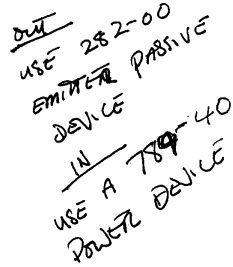 OUT
USE 282-00
EMITTER PASSIVE
DEVICE
IN
USE A 789-40
POWER DEVICE